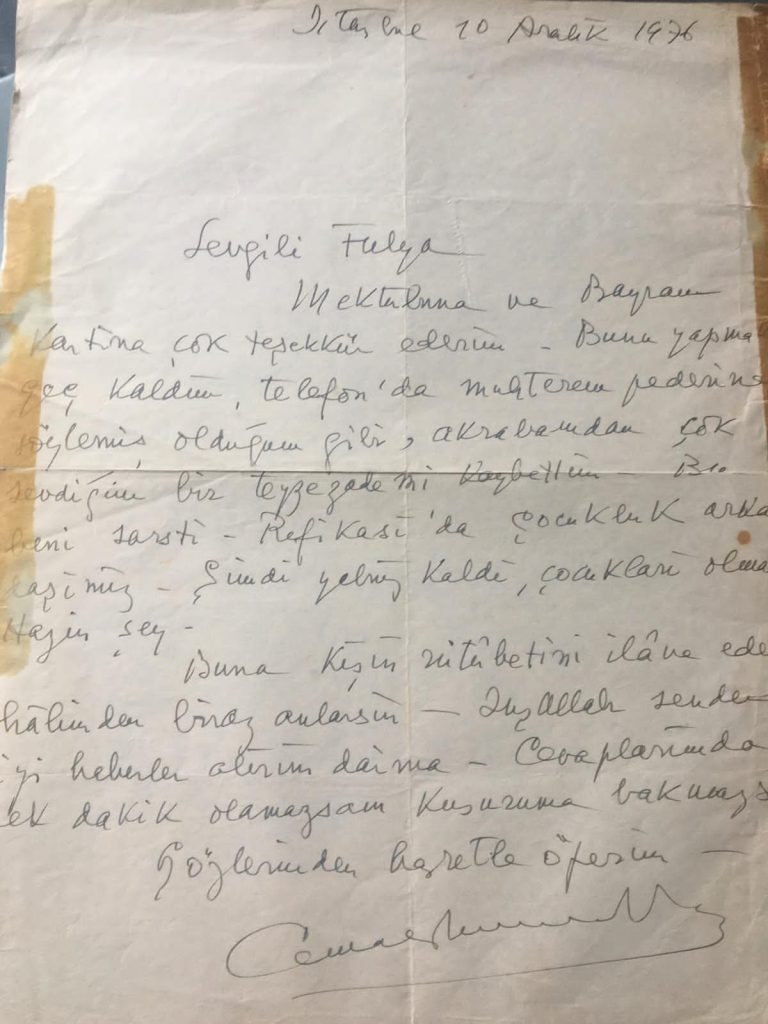 İstanbul 10 Aralık 1976
Sevgili Fulya
Mektubuna ve Bayram
Kartına çok teşekkür ederim – Bunu yapma
geç kaldım, telefon'da muhterem pederine
söylemiş olduğum gibi, akrabamdan çok
sevdiğim bir teyzezademi kaybettim – Bu
beni sarstı – Refikası'da çocukluk arka
daşımız – Şimdi yalnız kaldı, çocukları olma
Hazin şey –
Buna Kışın rütûbetini ilâve ede
hâlimden biraz anlarsın – İnşAllah senden
iyi haberler alırım daima – Cevaplarımda
pek dakik olamazsam kusuruma bakmazs
Gözlerinden hasretle öperim –